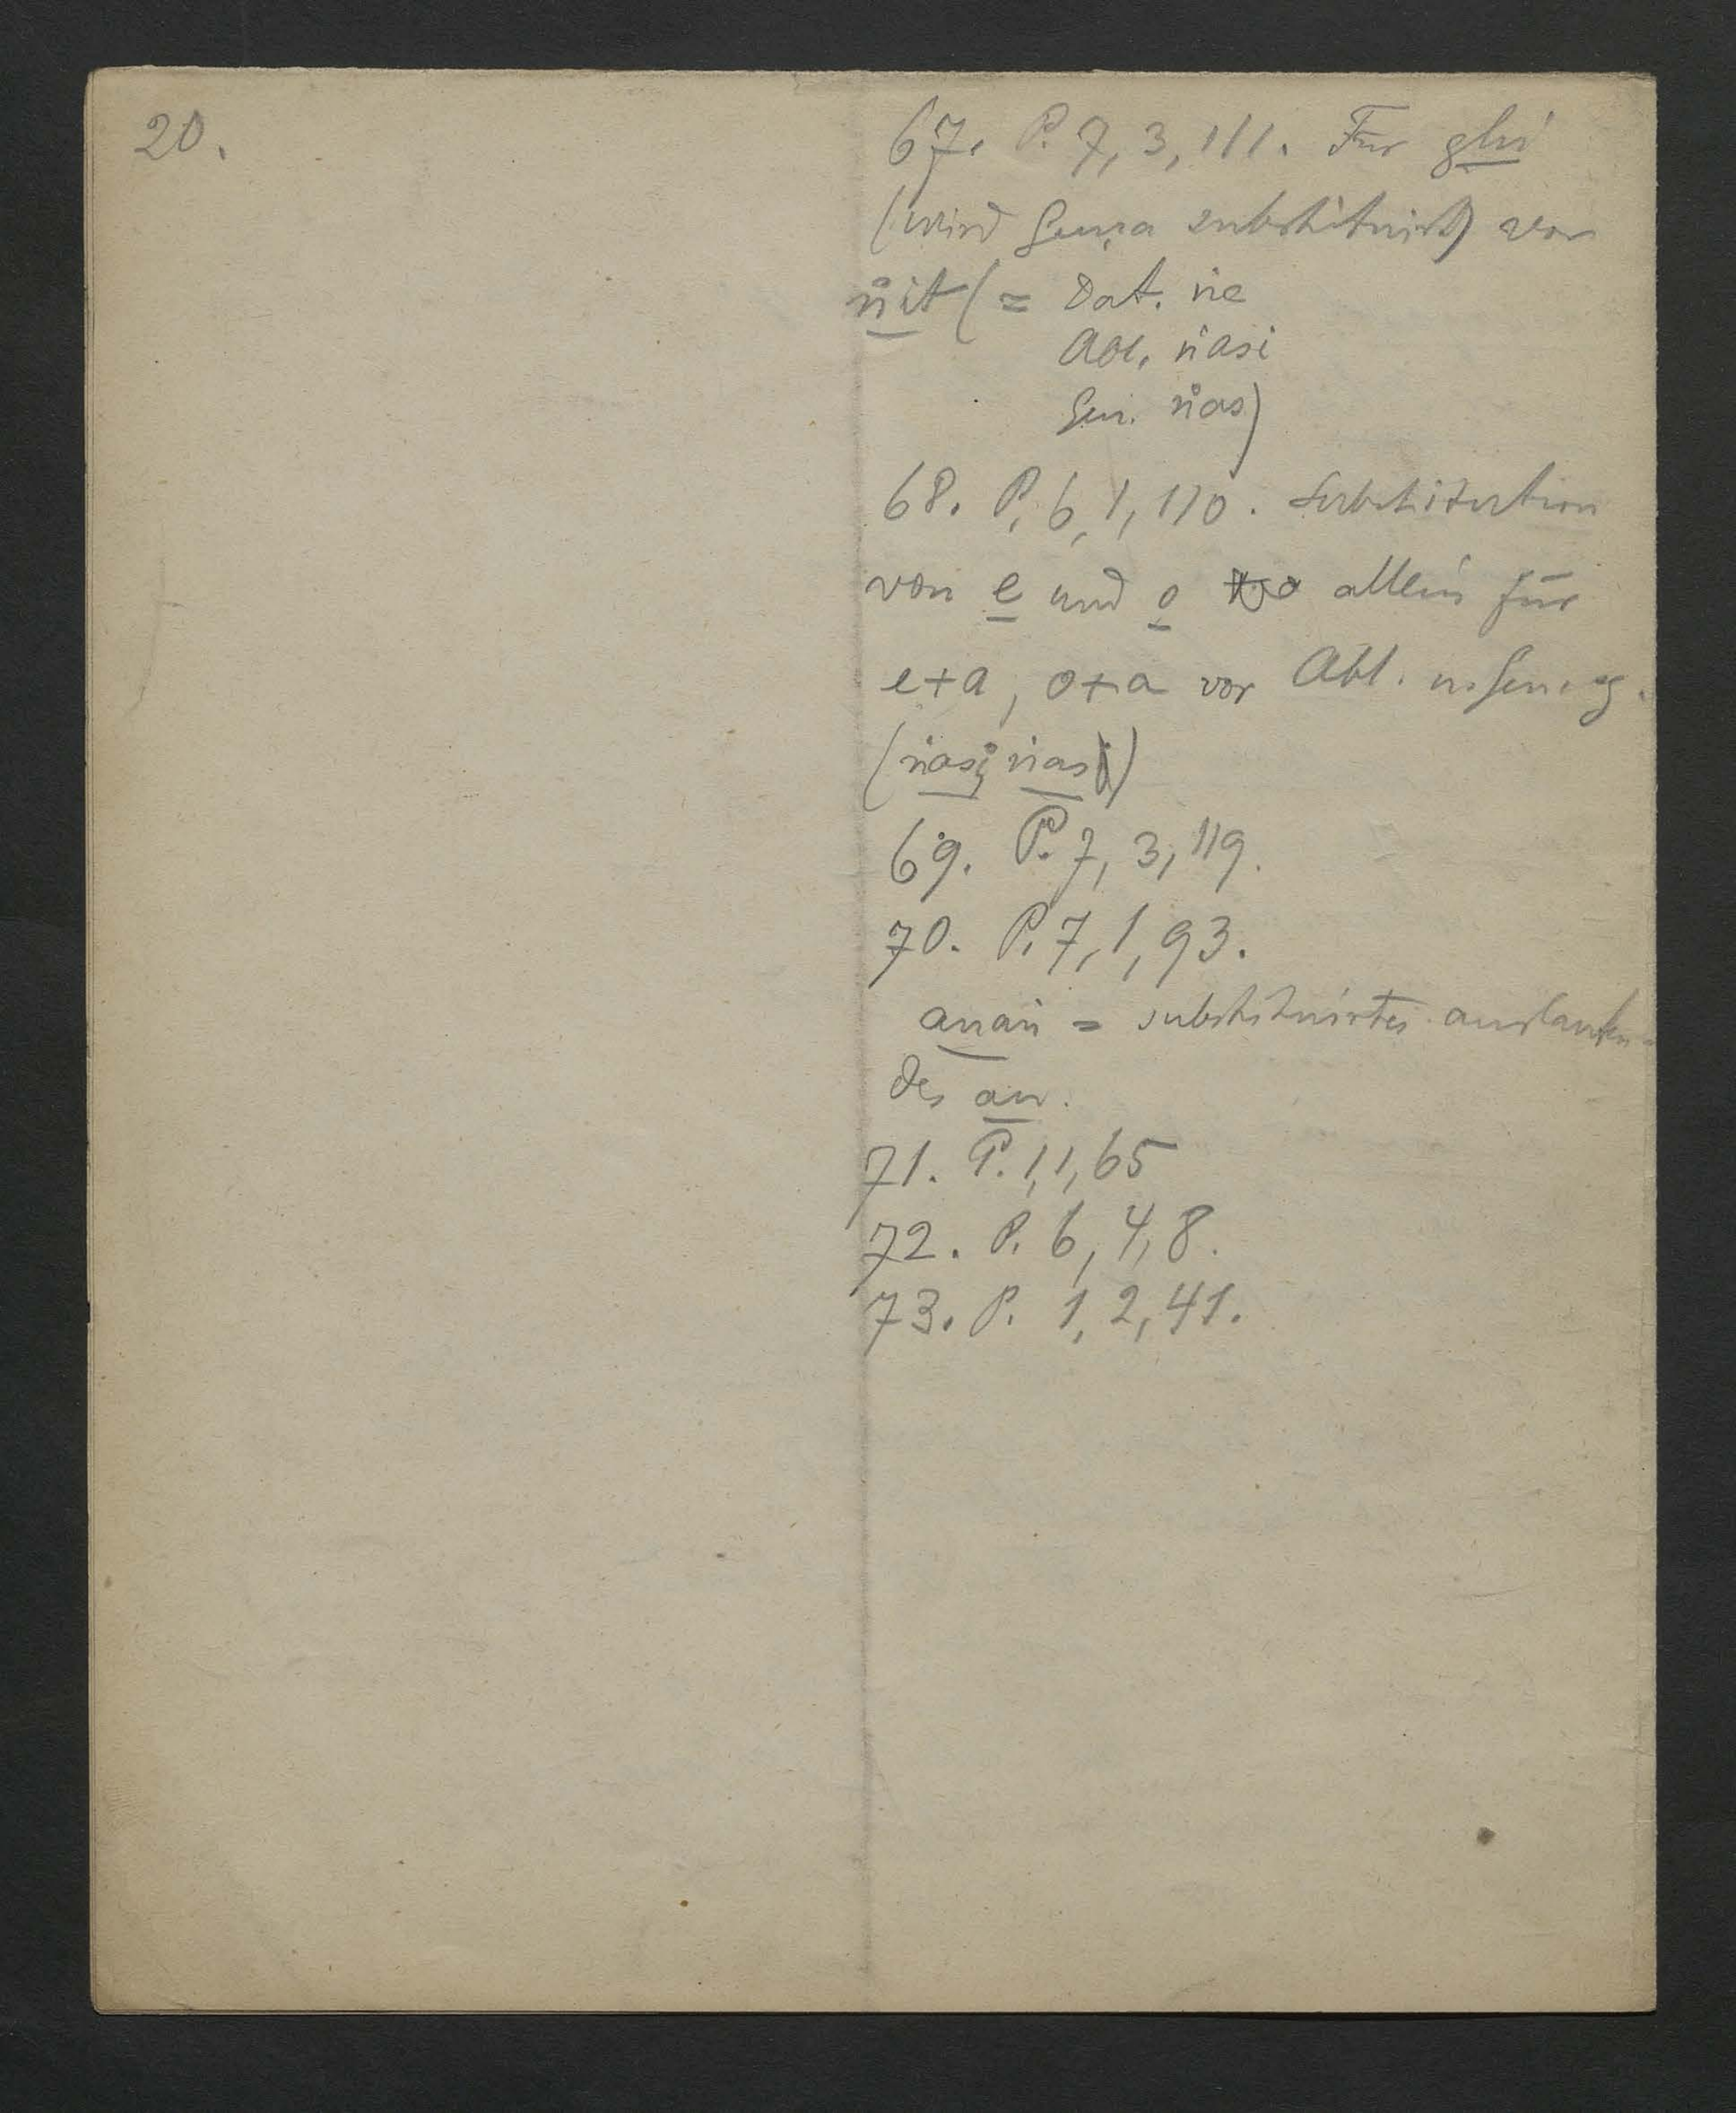 20.
67. P. 7, 3, 111. Für ghi
(wird Guṇa substituirt) vor
ṅit (= Dat. ṅe
Abl. ṅasi
Gen. ṅas)
68. P. 6, 1, 110. Substitution
von e und o allein für
e+a, o+a vor Abl. u. Gen. sg.
(ṅasi, ṅas)
69. P. 7, 3, 119.
70. P. 7, 1, 93.
anaṅ = substituirtes auslauten-
des an.
71. P. 1, 1, 65
72. P. 6, 4, 8.
73. P. 1, 2, 41.